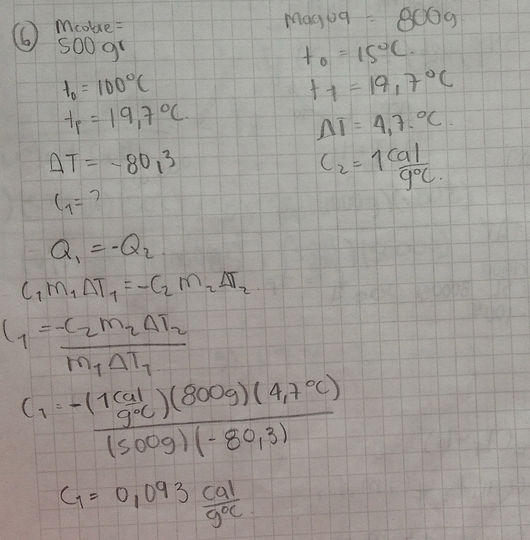 6 Mcobre=
500 gr
t₀ = 100°C
tf = 19,7°C
ΔT = -80,3
C₁ = ?
Magua = 800g
t₀ = 15°C.
tf = 19,7°C
ΔT = 4,7.°C.
C₂ = 1 cal/g°C.
Q₁ = -Q₂
C₁ m₁ ΔT₁ = -C₂ m₂ ΔT₂
C₁ = -C₂ m₂ ΔT₂ / m₁ ΔT₁
C₁ = -(1 cal/g°C)(800g)(4,7°C) / (500g)(-80,3)
C₁ = 0,093 cal/g°C